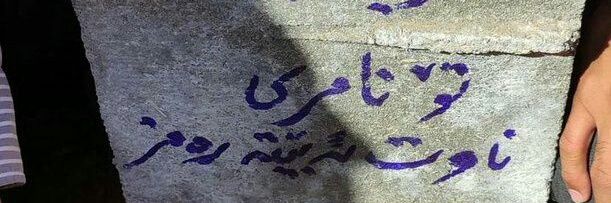 تۆ نامری
ناوت ئەبێتە ڕەمز